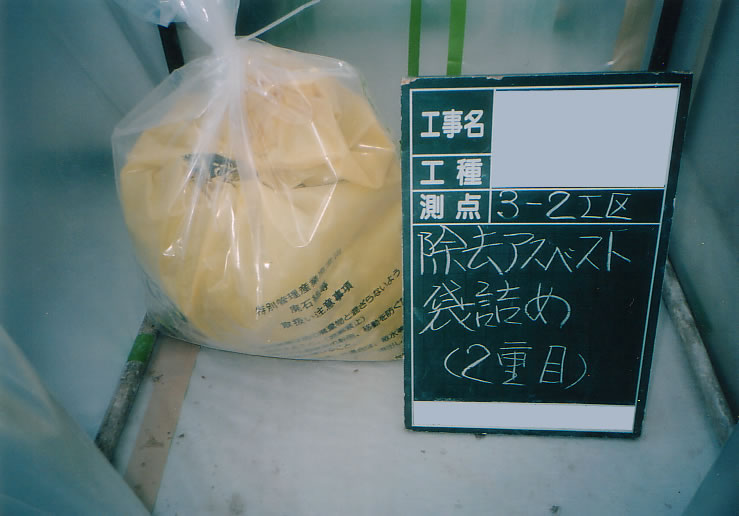 工事名
工種
測点 3-2工区
除去アスベスト
袋詰め
(2重目)
特別管理産業廃棄物
廃石綿等
取扱い注意事項